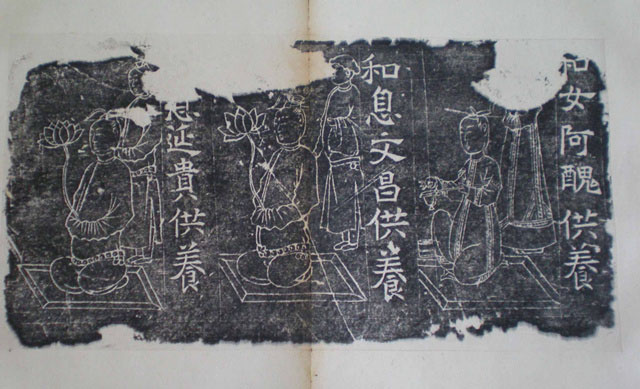 和女阿醜供養
和息文昌供養
息延貴供養